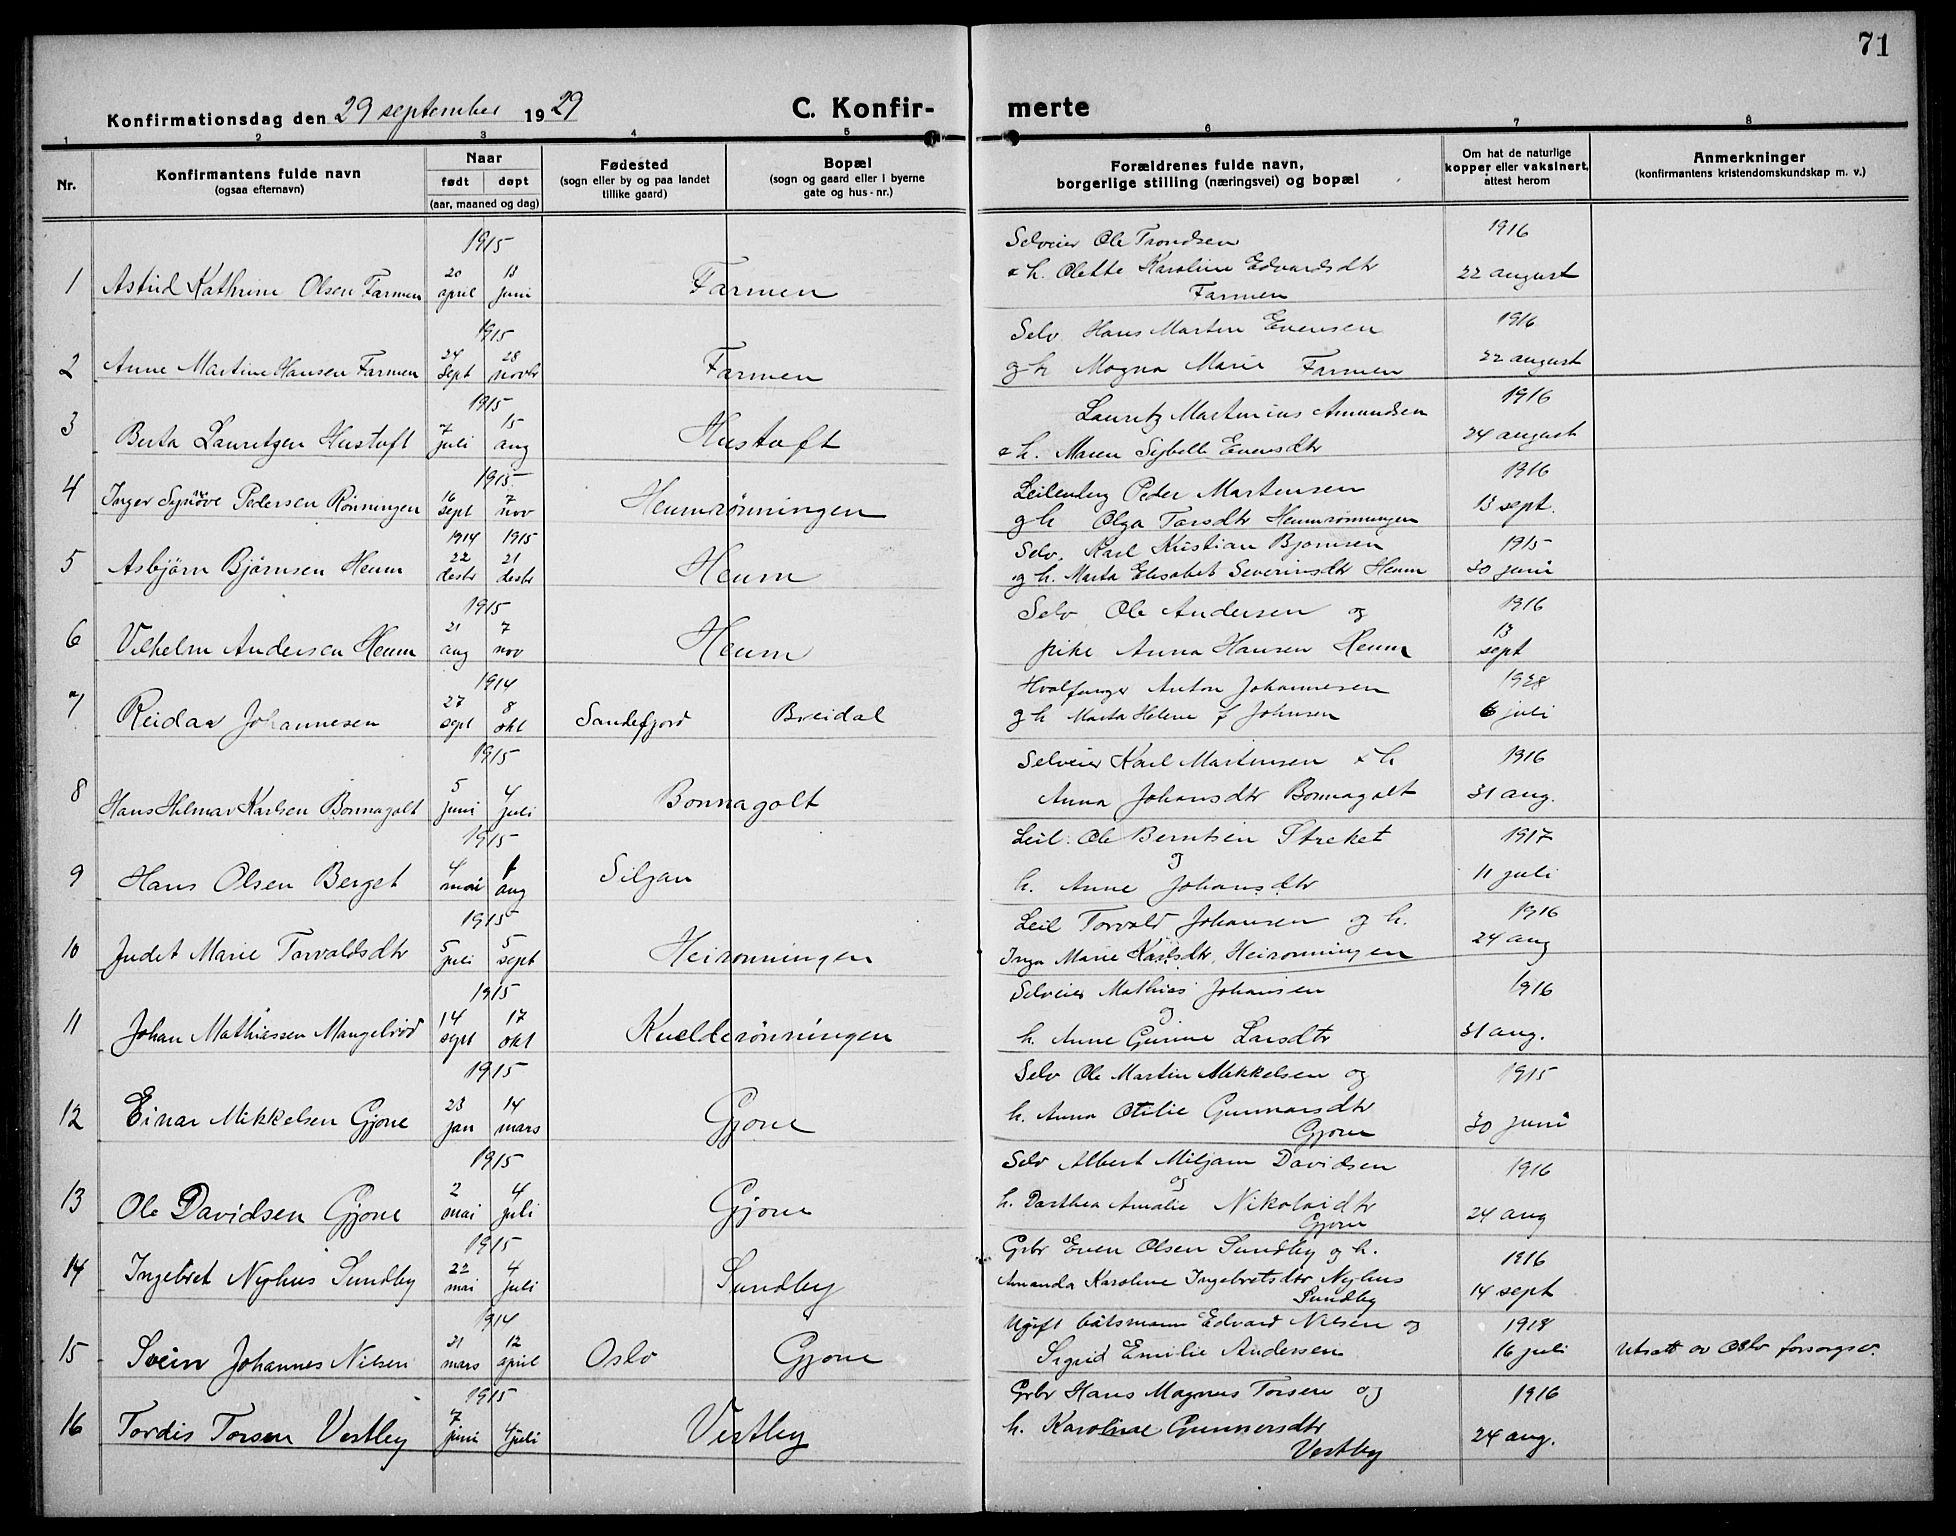 71
Konfirmationsdag den 29 september 1929 C. Konfirmerte
1 2 3 4 5 6 7 8
Nr.
Konfirmantens fulde navn
(ogsaa efternavn)
Naar
født døpt
(aar, maaned og dag)
Fødested
(sogn eller by og paa landet
tillike gaard)
Bopæl
(sogn og gaard eller i byerne
gate og hus-nr.)
Forældrenes fulde navn,
borgerlige stilling (næringsvei) og bopæl
Om hat de naturlige
kopper eller vaksinert,
attest herom
Anmerkninger
(konfirmantens kristendomskundskap m. v.)
1915 Selveier Ole Trondsen 1916
1 Astrid Kathrine Olsen Farmen 20 april 13 juni Farmen & h. Olette Karoline Edvardsdtr 22 august
Farmen
1915 Selv. Hans Martin Evensen 1916
2 Anne Martine Hansen Farmen 24 sept 28 novbr Farmen og h Magna Marie Farmen 22 august
1915 Lauritz Martinius Amundsen 1916
3 Berta Lauritzen Hustoft 7 juli 15 aug Hustoft & h. Maren Sybelle Evensdtr 24 august
1915 Leilendg Peder Martensen 1916
4 Inger Synnøve Pedersen Rönningen 16 sept 7 nov Heumrönningen og h Olga Tarsdtr Heumrönningen 13 sept.
1914 1915 Selv. Karl Kristian Bjornsen 1915
5 Asbjörn Björnsen Heum 22 desbr 21 desbr Heum og h. Marta Elisabet Severinsdtr Heum 30 juni
1915 Selv Ole Andersen og 1916
6 Vilhelm Andersen Heum 21 aug 7 nov Heum pike Anna Hansen Heum 13 sept
1914 Hvalfanger Anton Johannesen 1928
7 Reidar Johannesen 27 sept 8 okt Sandefjord Breidal og h Marta Helene f Johnsen 6 juli
1915 Selveier Karl Martinsen & h 1916
8 Hans Hilmar Karlsen Bonnagolt 5 juni 4 juli Bonnagolt Anna Johansdtr Bonnagolt 31 aug.
1915 Leil. Ole Berntsen Streket 1917
og
9 Hans Olsen Berget 4 mai 1 aug Siljan h. Anne Johansdtr 11 juli
1915 Leil Torvald Johansen og h. 1916
10 Judet Marie Torvaldsdtr 5 juli 5 sept Heironningen Inga Marie Karlsdtr, Heironningen 24 aug
1915 Selveier Mathias Johansen 1916
og
11 Johan Mathiassen Mangelrød 14 sept 17 okt Kuelderönningen h. Anne Gurine Larsdtr 31 aug.
1915 Selv Ole Martin Mikkelsen og 1915
12 Einar Mikkelsen Gjone 23 jan 14 mars Gjone h. Anna Otilie Gunnarsdtr 30 juni
Gjone
1915 Selv Albert Miljam Davidsen 1916
og
13 Ole Davidsen Gjone 2 mai 4 juli Gjone h. Dorthea Amalie Nikolaidtr 24 aug
Gjone
1915 Grbr Even Olsen Sundby og h. 1916
14 Ingebret Nyhus Sundby 22 mai 4 juli Sundby Amanda Karoline Ingebretsdtr Nyhus 14 sept
Sundby
1914 Ugift båtsmann Edvard Nilsen og 1918
15 Svein Johannes Nilsen 21 mars 12 april Oslo Gjone Sigrid Emilie Andersen 16 juli Utsatt av Oslo forsorgsv.
1915 Grbr Hans Magnus Torsen og 1916
16 Tordis Torsen Vestby 7 juni 4 juli Vestby h. Karoline Gunnersdtr 24 aug.
Vestby